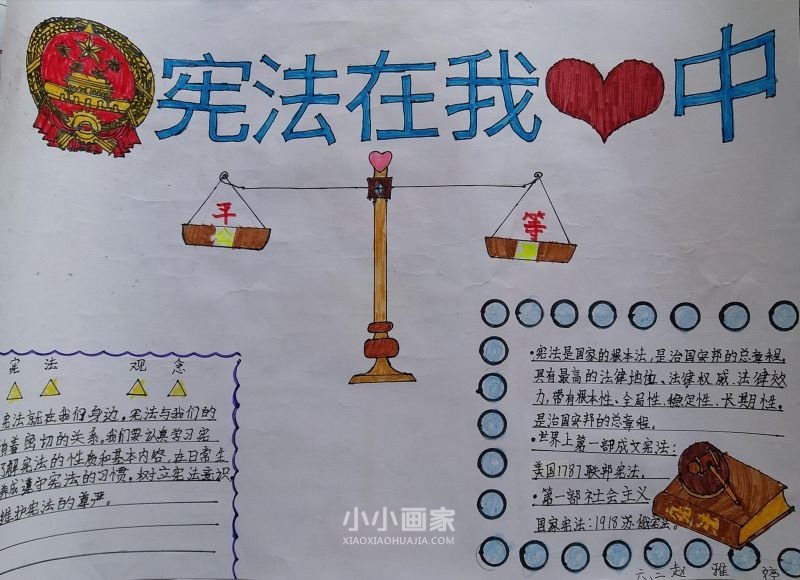 宪法在我中
平
等
公
宪法观念
宪法就在我们身边,宪法与我们的
着密切的关系,我们要认真学习宪
了解宪法的性质和基本内容,在日常生
养成遵守宪法的习惯,树立宪法意识,
维护宪法的尊严。
•宪法是国家的根本法,是治国安邦的总章程,
具有最高的法律地位、法律权威、法律效
力,带有根本性、全局性、稳定性、长期性,
是治国安邦的总章程。
•世界上第一部成文宪法:
美国1787联邦宪法。
•第一部社会主义
国家宪法:1918苏俄宪法。
宪法
六二 赵雅婷
小小画家
XIAOXIAOHUAJIA.COM